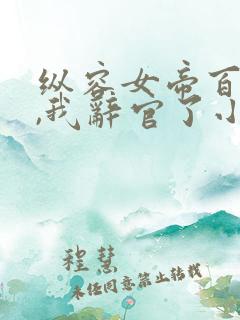 纵容女帝百
,我辞官了小
程慧
未经同意禁止转载